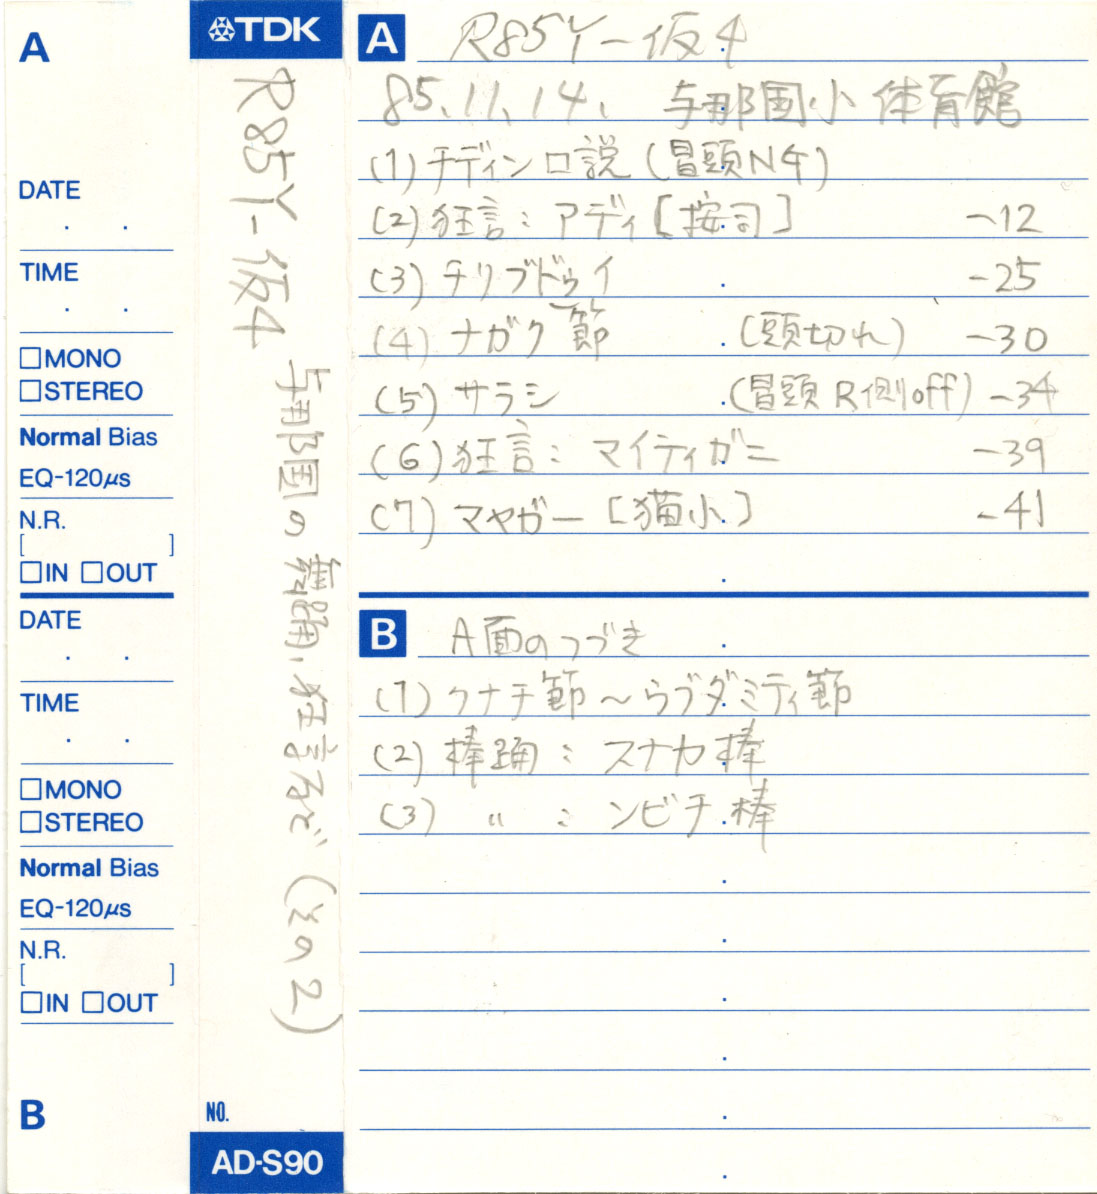 A
DATE
. .
TIME
. .
□MONO
□STEREO
Normal Bias
EQ-120μs
N.R.
[ ]
□IN □OUT
DATE
. .
TIME
. .
□MONO
□STEREO
Normal Bias
EQ-120μs
N.R.
[ ]
□IN □OUT
B
TDK
R85Y-仮4
与那国の舞踊、狂言など(その2)
NO.
AD-S90
A R85Y-仮4
85.11.14. 与那国小体育館
(1) チディン口説(冒頭N4)
(2) 狂言:アディ[按司] -12
(3) チリブドゥイ -25
(4) ナガク節 (頭切れ) -30
(5) サラシ (冒頭R側off) -34
(6) 狂言:マイティガニ -39
(7) マヤガー[猫小] -41
B A面のつづき
(1) クナチ節~らブダミティ節
(2) 棒踊:スナカ棒
(3) 〃 :ンビチ棒